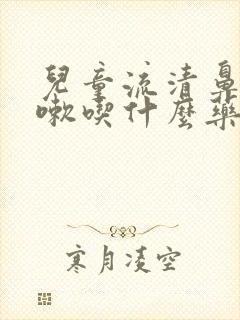 兒童流清鼻
嗽喫什麼藥
寒月凌空